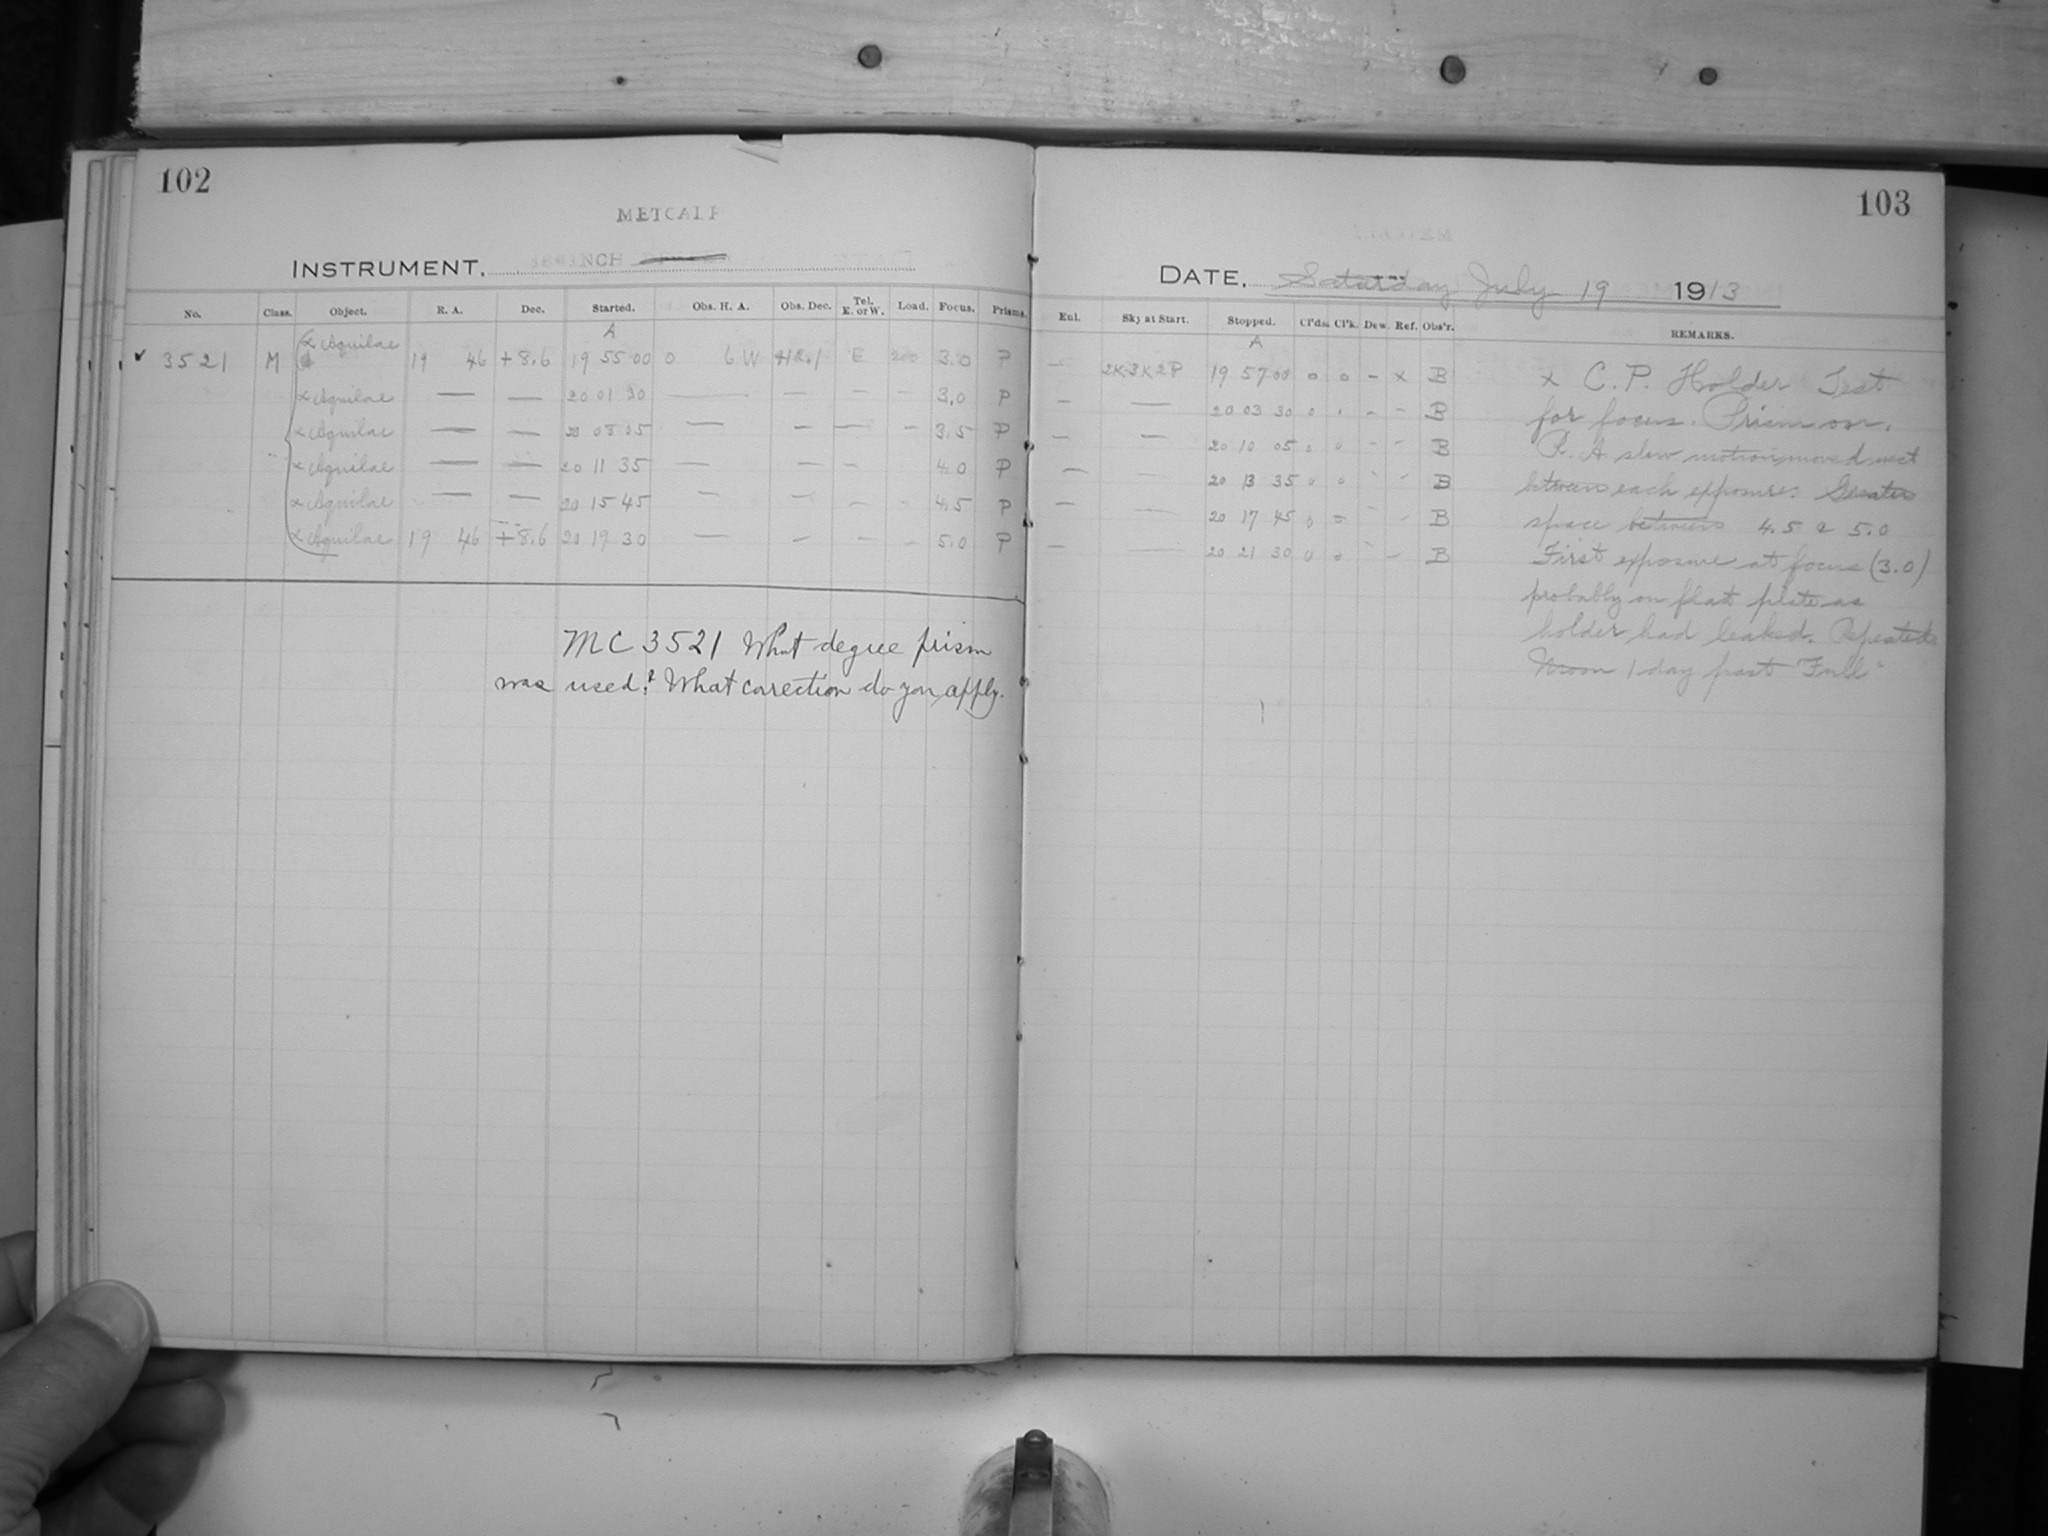 102
METCALF
INSTRUMENT. INCH
No. Class. Object. R. A. Dec. Started. Obs. H. A. Obs. Dec. Tel. E. or W. Load. Focus. Prisms.
A
✓ 3521 M α Aquilae 19 46 +8.6 19 55 00 0 6 W E 3.0 P
α Aquilae — — 20 01 30 — — — — 3.0 P
α Aquilae — — 20 08 05 — — — — 3.5 P
α Aquilae — — 20 11 35 — — — 4.0 P
α Aquilae — — 20 15 45 — — — 4.5 P
α Aquilae 19 46 +8.6 20 19 30 — — — — 5.0 P
MC 3521 What degree prism
was used? What corection do you apply.
103
DATE. Saturday July 19 1913
Eul. Sky at Start. Stopped. Cl'ds. Cl'k. Dew. Ref. Obs'r. REMARKS.
A
— 2K3K2P 19 57 00 0 0 – x B
— — 20 03 30 0 – – B
— — 20 10 05 0 0 – – B
— 20 13 35 0 0 – – B
— — 20 17 45 0 – B
— — 20 21 30 0 0 – B
x C. P. Holder Test
for focus. Prism on.
R. A. slow motion moved west
between each exposure. Greater
space between 4.5 & 5.0
First exposure at focus (3.0)
probably on flat plate as
holder had leaked. Repeated
Moon 1 day past "Full"